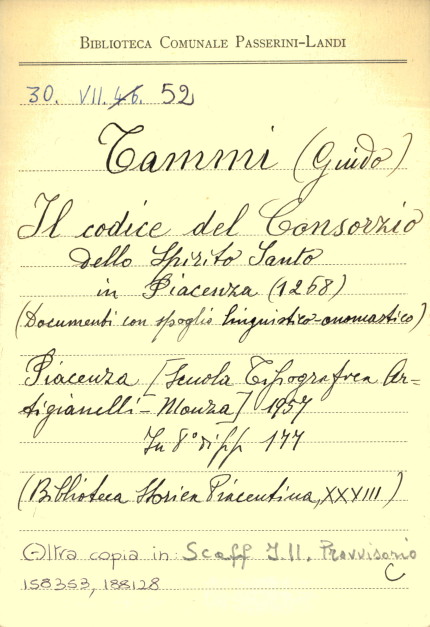 BIBLIOTECA COMUNALE PASSERINI-LANDI
30. VII. 46. 52
Tammi (Guido)
Il codice del Consorzio
dello Spirito Santo
in Piacenza (1268)
(Documenti con spoglio linguistico-onomastico)
Piacenza [Scuola Tipografica Ar=
tigianelli-Monza] 1957
In 8° di pp 177
(Biblioteca Storica Piacentina, XXXIII)
Altra copia in: Scaff J.II. Provvisorio
C
158353, 188128